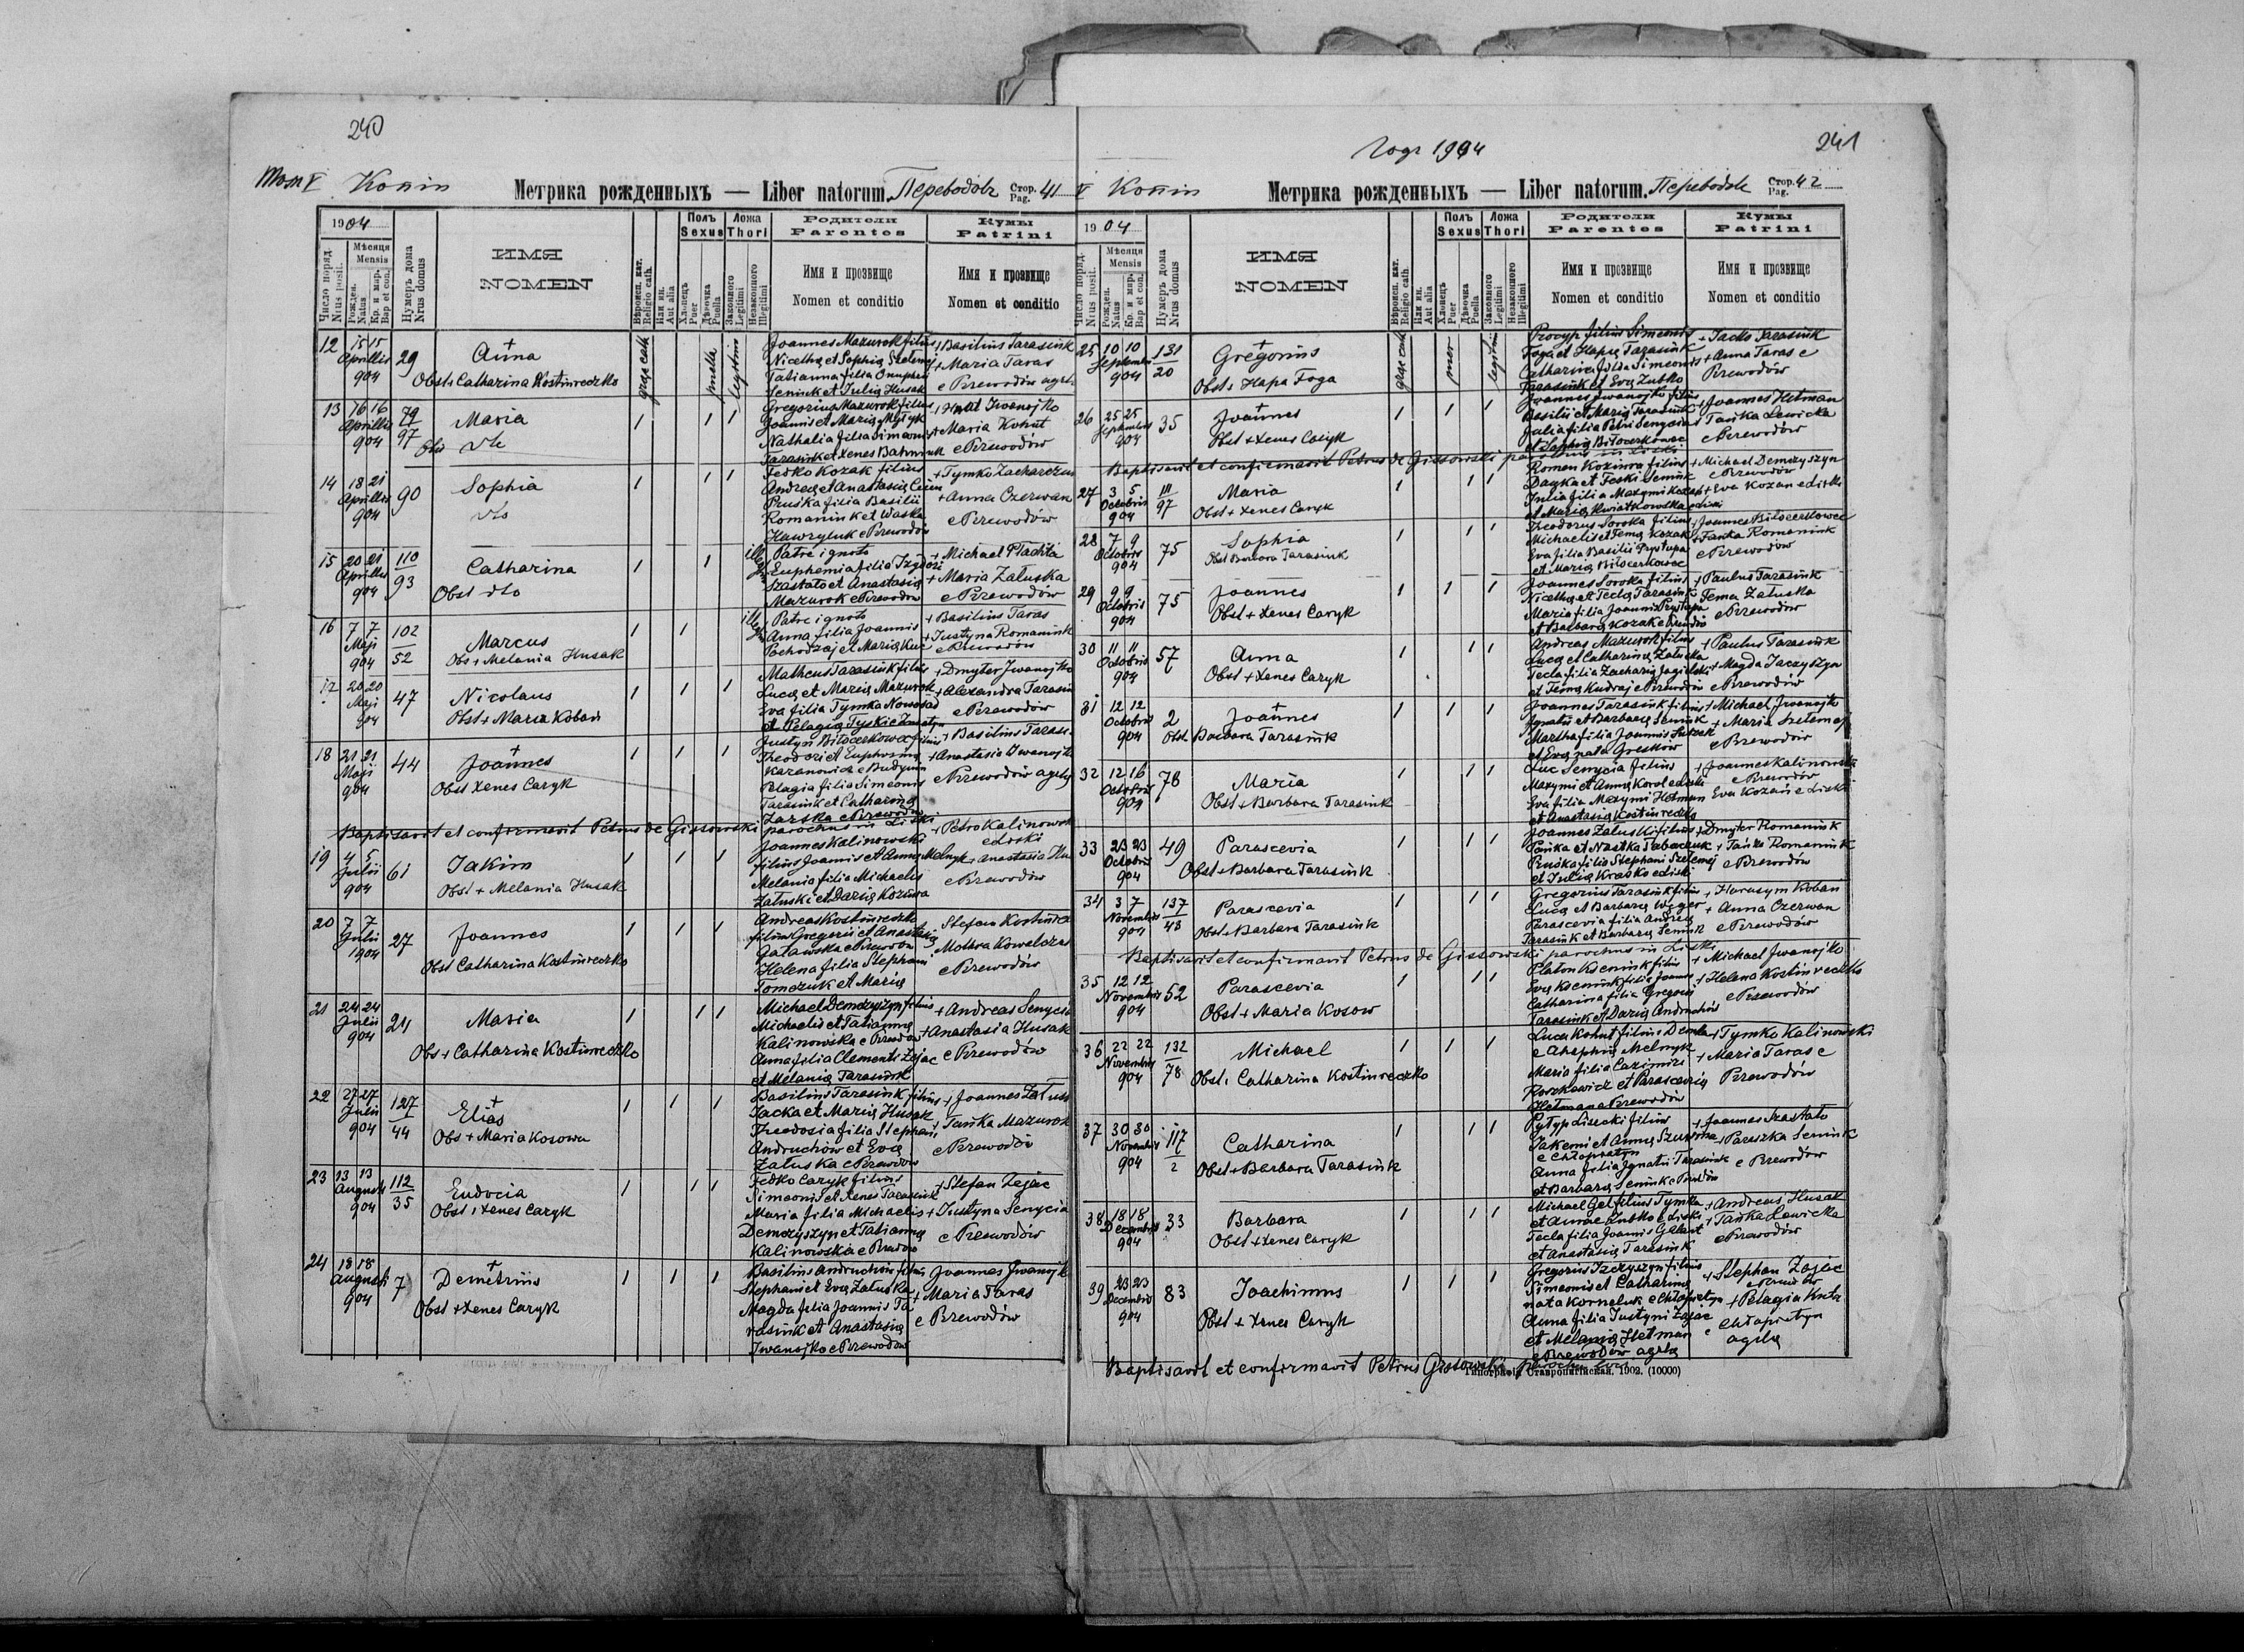 240
Том V Копія Метрика рожденныхъ — Liber natorum. Переводовъ Стор. Pag. 41
1904
Число поряд. Nrus posit.
Мѣсяця Mensis
Рожден. Natus
Кр. и мир. Bap et con.
Нумеръ дома Nrus domus
ИМЯ
NOMEN
Вѣроисп. кат. Religio cath.
Или ин. Aut alia
Полъ Sexus
Хлопецъ Puer
Дѣвочка Puella
Ложа Thori
Законного Legitimi
Незаконного Illegitimi
Родители
Parentes
Имя и прозвище
Nomen et conditio
Кумы
Patrini
Имя и прозвище
Nomen et conditio
12 15 15 Aprillis 904 29
Anna
Obst. Catharina Kostiureczko
graec cath puella legitim
Joannes Mazurok filius
Nicethą et Sophią Szełemej
Tatianna filia Onuphrii
Seniuk et Julią Husak
+ Basilius Tarasiuk
+ Maria Taras
e Przewodów agrlę
13 16 16 Aprillis 904 79/97
Maria
Obs dto
Gregorius Mazurok filius
Joannis et Marią
Nathalia filia Simeonis
Tarasiuk et Xenes
+ Hnat Iwanojko
+ Maria Kohut
e Przewodów
14 18 21 Aprillis 904 90
Sophia
dto
Fedko Kozak filius
Andreą et Anastasią
Pruśka filia Basilii
Romaniuk et Waśka
Hawryluk e Przewodów
+ Tymko Zacharczuk
+ Anna Czerwan
e Przewodów
15 20 21 Aprillis 904 110/93
Catharina
Obst dto
Patre ignoto
Euphemia filia Izydori
Szastało et Anastasią
Mazurok e Przewodów
+ Michael Płachta
+ Maria Załuska
e Przewodów
16 7 7 Maji 904 102/52
Marcus
Obs + Melania Husak
Patre ignoto
Anna filia Joannis
Pochodzaj et Marią Kuc
+ Basilius Taras
+ Justyna Romaniuk
e Przewodów
17 20 20 Maji 904 47
Nicolaus
Obst + Maria Koban
Matheus Tarasiuk filius
Lucą et Marią Mazurok
Eva filia Tymka Nowosad
et Pelagią
+ Dmyter Iwanojko
+ Alexandra Tarasiu
e Przewodów
18 21 21 Maji 904 44
Joannes
Obst Xenes Caryk
Justyn Biłocerkowec filius
Theodori et Euphrosiną
Kazanowicz e Budynin
Pelagia filia Simeonis
Tarasiuk et Catharina
Zarska e Przewodów
+ Basilius Tarasi
+ Anastasia Iwanojk
e Przewodów agrlę
Baptisavit et confirmavit Petrus de Gissowski parochus in Liski
19 4 5 Julii 904 61
Jakim
Obst + Melania Husak
Joannes Kalinowski
filius Joannis et Anna Melnyk
Melania filia Michaelis
Załuski et Darią Kozowa
+ Petro Kalinowski
e Liski
+ Anastasia Hu
e Przewodów
20 7 7 Julii 1904 27
Joannes
Obst Catharina Kostiureczko
Andreas Kostiureczko
filius Gregorii et Anastasią
Gałańska e Przewodów
Helena filia Stephani
Tomczuk et Marią
Stefan Kostiurecz
Mothra Kowalczuk
e Przewodów
21 24 24 Julii 904 24
Maria
Obs + Catharina Kostiureczko
Michael Demczyszyn filius
Michaelis et Tatianną
Kalinowska e Przewodów
Anna filia Clementi Zając
et Melanią Tarasiuk
+ Andreas Senycia
+ Anastasia Husak
e Przewodów
22 27 27 Julii 904 127/44
Elias
Obs + Maria Kosowa
Basilius Tarasiuk filius
Jacka et Marią Husak
Theodosia filia Stephani
Andruchów et Evą
Załuska e Przewodów
+ Joannes Załuski
Tańka Mazurok
e Przewodów
23 13 13 Augusti 904 112/35
Eudocia
Obst + Xenes Caryk
Fedko Caryk filius
Simeonis et Xenes Tarasiuk
Maria filia Michaelis
Demczyszyn et Tatianną
Kalinowska e Przewodów
+ Stefan Zając
+ Justyna Senycia
e Przewodów
24 18 18 Augusti 904 7
Demetrius
Obst + Xenes Caryk
Basilius Andruchów filius
Stephani et Evą Załuska
Magda filia Joannis Ta
rasiuk et Anastasią
Iwanojko e Przewodów
Joannes Iwanojk
+ Maria Taras
e Przewodów
Годъ 1904
241
V Копія Метрика рожденныхъ — Liber natorum. Переводовъ Стор. Pag. 42
1904
Число поряд. Nrus posit.
Мѣсяця Mensis
Рожден. Natus
Кр. и мир. Bap et con.
Нумеръ дома Nrus domus
ИМЯ
NOMEN
Вѣроисп. кат. Religio cath.
Или ин. Aut alia
Полъ Sexus
Хлопецъ Puer
Дѣвочка Puella
Ложа Thori
Законного Legitimi
Незаконного Illegitimi
Родители
Parentes
Имя и прозвище
Nomen et conditio
Кумы
Patrini
Имя и прозвище
Nomen et conditio
25 10 10 Septembris 904 131/20
Gregorius
Obst. Hapa Foga
graec cath puer legitim
Procyp filius Simeonis
Foga et Hapą Tarasiuk
Catharina filia Simeonis
Tarasiuk et Evą Zubko
+ Jacko Tarasiuk
+ Anna Taras e
Przewodów
26 25 25 Septembris 904 35
Joannes
Obst + Xenes Caryk
Joannes Iwanojko filius
Basilii et Marią Tarasiuk
Julia filia Petri Senycia
et Sophią Biłocerkowec
+ Joannes Hetman
+ Tańka Lewicka
e Przewodów
Baptisavit et confirmavit Petrus de Gissowski parochus in Liski
27 3 5 Octobris 904 111/97
Maria
Obst + Xenes Caryk
Roman Kozimra filius
Dańka et Feski Semiuk
Julia filia Maxymi Kozań
et Marią Kwiatkowska e Liski
+ Michael Demczyszyn
e Przewodów
+ Eva Kozań e Liski
28 7 9 Octobris 904 75
Sophia
Obst Barbara Tarasiuk
Theodorus Soroka filius
Michaelis et Femą Kozak
Eva filia Basilii Prystupa
et Marią Biłocerkowec
+ Joannes Biłocerkowec
+ Tańka Romaniuk
e Przewodów
29 9 9 Octobris 904 75
Joannes
Obst + Xenes Caryk
Joannes Soroka filius
Nicethą et Teclą Tarasiuk
Maria filia Joannis Prystupa
et Barbarą Kozak e Przewodów
+ Paulus Tarasiuk
Fema Załuska
e Przewodów
30 11 11 Octobris 904 57
Anna
Obst + Xenes Caryk
Andreas Mazurok filius
Lucą et Catharina Załuska
Tecla filia Zacharią Jagielski
et Femą Kudraj e Przewodów
+ Paulus Tarasiuk
+ Magda Jaczyszyn
e Przewodów
31 12 12 Octobris 904 2
Joannes
Obst Barbara Tarasiuk
Joannes Tarasiuk filius
Ignatii et Barbarą Semiuk
Martha filia Joannis
et Evą nata Gresków
+ Michael Iwanojko
+ Maria Szełemej
e Przewodów
32 12 16 Octobris 904 78
Maria
Obst + Barbara Tarasiuk
Luc Senycia filius
Maxymi et Anną Korol e Liski
Eva filia Maxymi Hetman
et Anastasią Kostiureczko
+ Joannes Kalinowski
e Przewodów
Eva Kozań e Liski
33 23 23 Octobris 904 49
Parascevia
Obst + Barbara Tarasiuk
Joannes Załuski filius
Pańka et Nastka Tabaczuk
Pruśka filia Stephani Szełemej
et Julią Krasko e Liski
+ Dmyter Romaniuk
+ Tańka Romaniuk
e Przewodów
34 3 7 Novembris 904 137/43
Parascevia
Obst + Barbara Tarasiuk
Gregorius Tarasiuk filius
Lucą et Barbarą Węger
Parascevia filia Andreą
Tarasiuk et Barbarą Semiuk
+ Harasym Koban
+ Anna Czerwan
e Przewodów
Baptisavit et confirmavit Petrus de Gissowski parochus in Liski
35 12 12 Novembris 904 52
Parascevia
Obst + Maria Kosow
Platon filius
Evą filia Joannis
Catharina filia Gregorii
Tarasiuk et Darią Andruchów
+ Michael Iwanojko
+ Helena Kostiureczko
e Przewodów
36 22 22 Novembris 904 132/78
Michael
Obst. Catharina Kostiureczko
Luca Kohut filius Demka
e Ahaphią Melnyk
Maria filia Cazimiri
Roszkowicz et Parascevią
Hetman e Przewodów
+ Tymko Kalinowski
+ Maria Taras e
Przewodów
37 30 30 Novembris 904 117/2
Catharina
Obst + Barbara Tarasiuk
Pyłyp Lisecki filius
Jakemi et Anną
e Chłopiatyn
Anna filia Ignatii Tarasiuk
et Barbarą Semiuk e Przewodów
+ Joannes Szastało
+ Paraszka Semiuk
e Przewodów
38 18 18 Decembris 904 33
Barbara
Obst + Xenes Caryk
Michael Gel filius Tymka
et Annae Zubko e Liski
Tecla filia Joannis Galant
et Anastasią Tarasiuk
+ Andreas Husak
+ Tańka Lewicka
e Przewodów
39 23 23 Decembris 904 83
Joachimus
Obst + Xenes Caryk
Gregorius filius
Simeonis et Catharina
nata Korneluk e Chłopiatyn
Anna filia Justyni Zając
et Melanią Hetman
e Przewodów agrlę
+ Stephan Zając
e Przewodów
+ Pelagia
e Chłopiatyn
agrlę
Baptisavit et confirmavit Petrus Gissowski parochus loci
Типографія Ставропигійская. 1902. (10000)